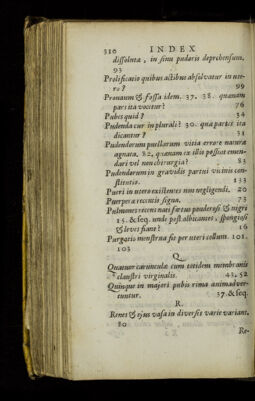 310 INDEX
dissoluta, in sinu pudoris deprehensum.
93
Prolificatio quibus actibus absolvatur in ute-
ro? 99
Pronaum & fossa idem. 37. 38. quanam
pars ita vocitur? 76
Pubes quid? 34
Pudenda cur in plurali? 30. qua partes ita
dicantur? 31
Pudendorum puellarum vitia errore naturæ
agnata, 82, quænam ex illis possint emen-
dari vel non chirurgia? 83
Pudendorum in gravidis partui vicinis con-
stitutio. 133
Pueri in utero existentes non negligendi. 20
Puerperæ recentis signa. 73
Pulmones recens nati fœtus ponderosi & nigri
15. & seq. unde post albicantes, spongiosi
& leves fiant? 16
Purgatio menstrua fit per uteri collum. 101.
103
Q.
Quatuor carunculæ cum totidem membranis
claustri virginalis. 43. 52
Quinque in majori pubis rima animadver-
tuntur. 37. & seq.
R.
Renes & ejus vasa in diversis varie variant.
80
Re-